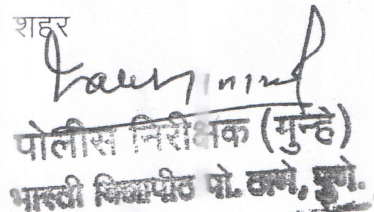 शहर
पोलीस निरीक्षक (गुन्हे)
भारती विद्यापीठ पो. ठाणे, पुणे.